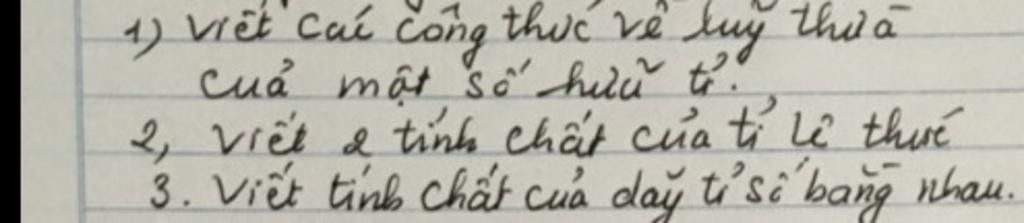 1) Viết các công thức về luỹ thừa
của một số hữu tỉ.
2, Viết 2 tính chất của tỉ lệ thức
3. Viết tính chất của dãy tỉ số bằng nhau.